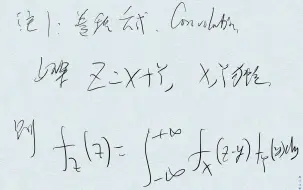 注1: 卷积公式. Convolution
如果 Z=X+Y, X,Y独立.
则 f_Z(z)=∫_{-∞}^{+∞} f_X(z-y) f_Y(y)dy